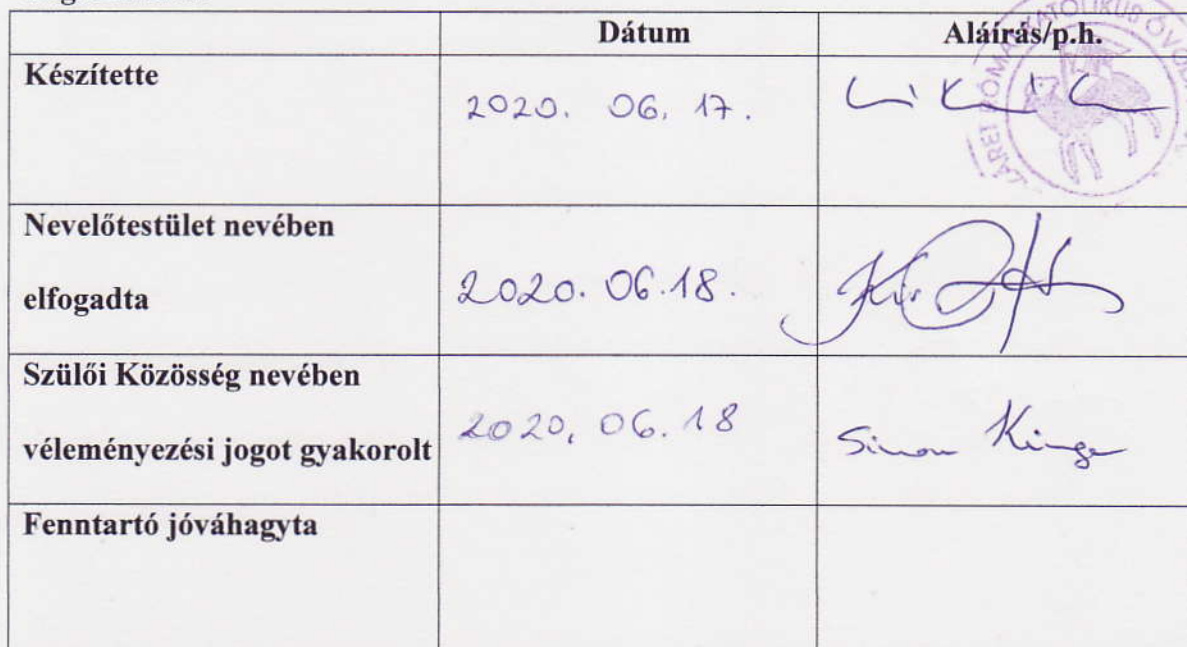 Dátum Aláírás/p.h.
Készítette 2020. 06. 17.
Nevelőtestület nevében
elfogadta 2020. 06.18.
Szülői Közösség nevében
véleményezési jogot gyakorolt 2020, 06. 18 Simon Kinga
Fenntartó jóváhagyta
KATOLIKUS